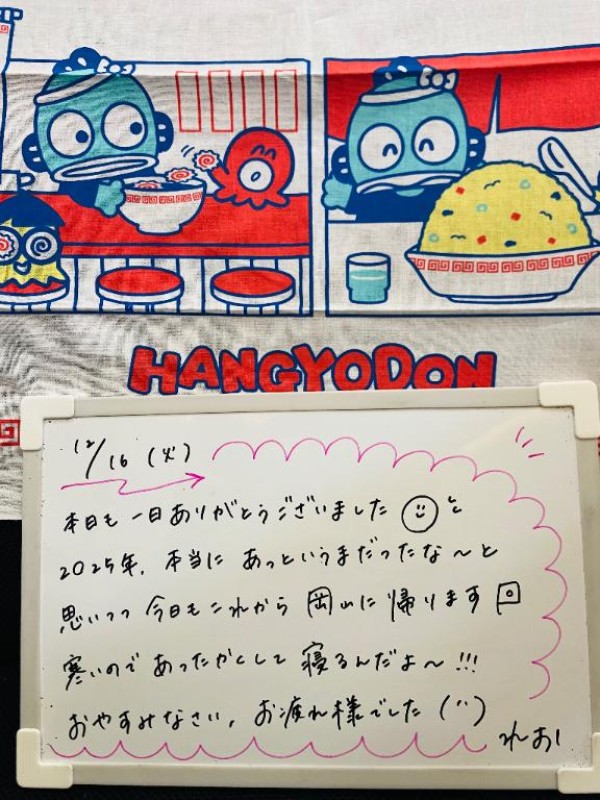 HANGYODON
12/16 (火)
本日も一日ありがとうございました
2025年、本当にあっというまだったな〜と
思いつつ今日もこれから岡山に帰ります
寒いのであったかくして寝るんだよ〜!!!
おやすみなさい、お疲れ様でした
れおし